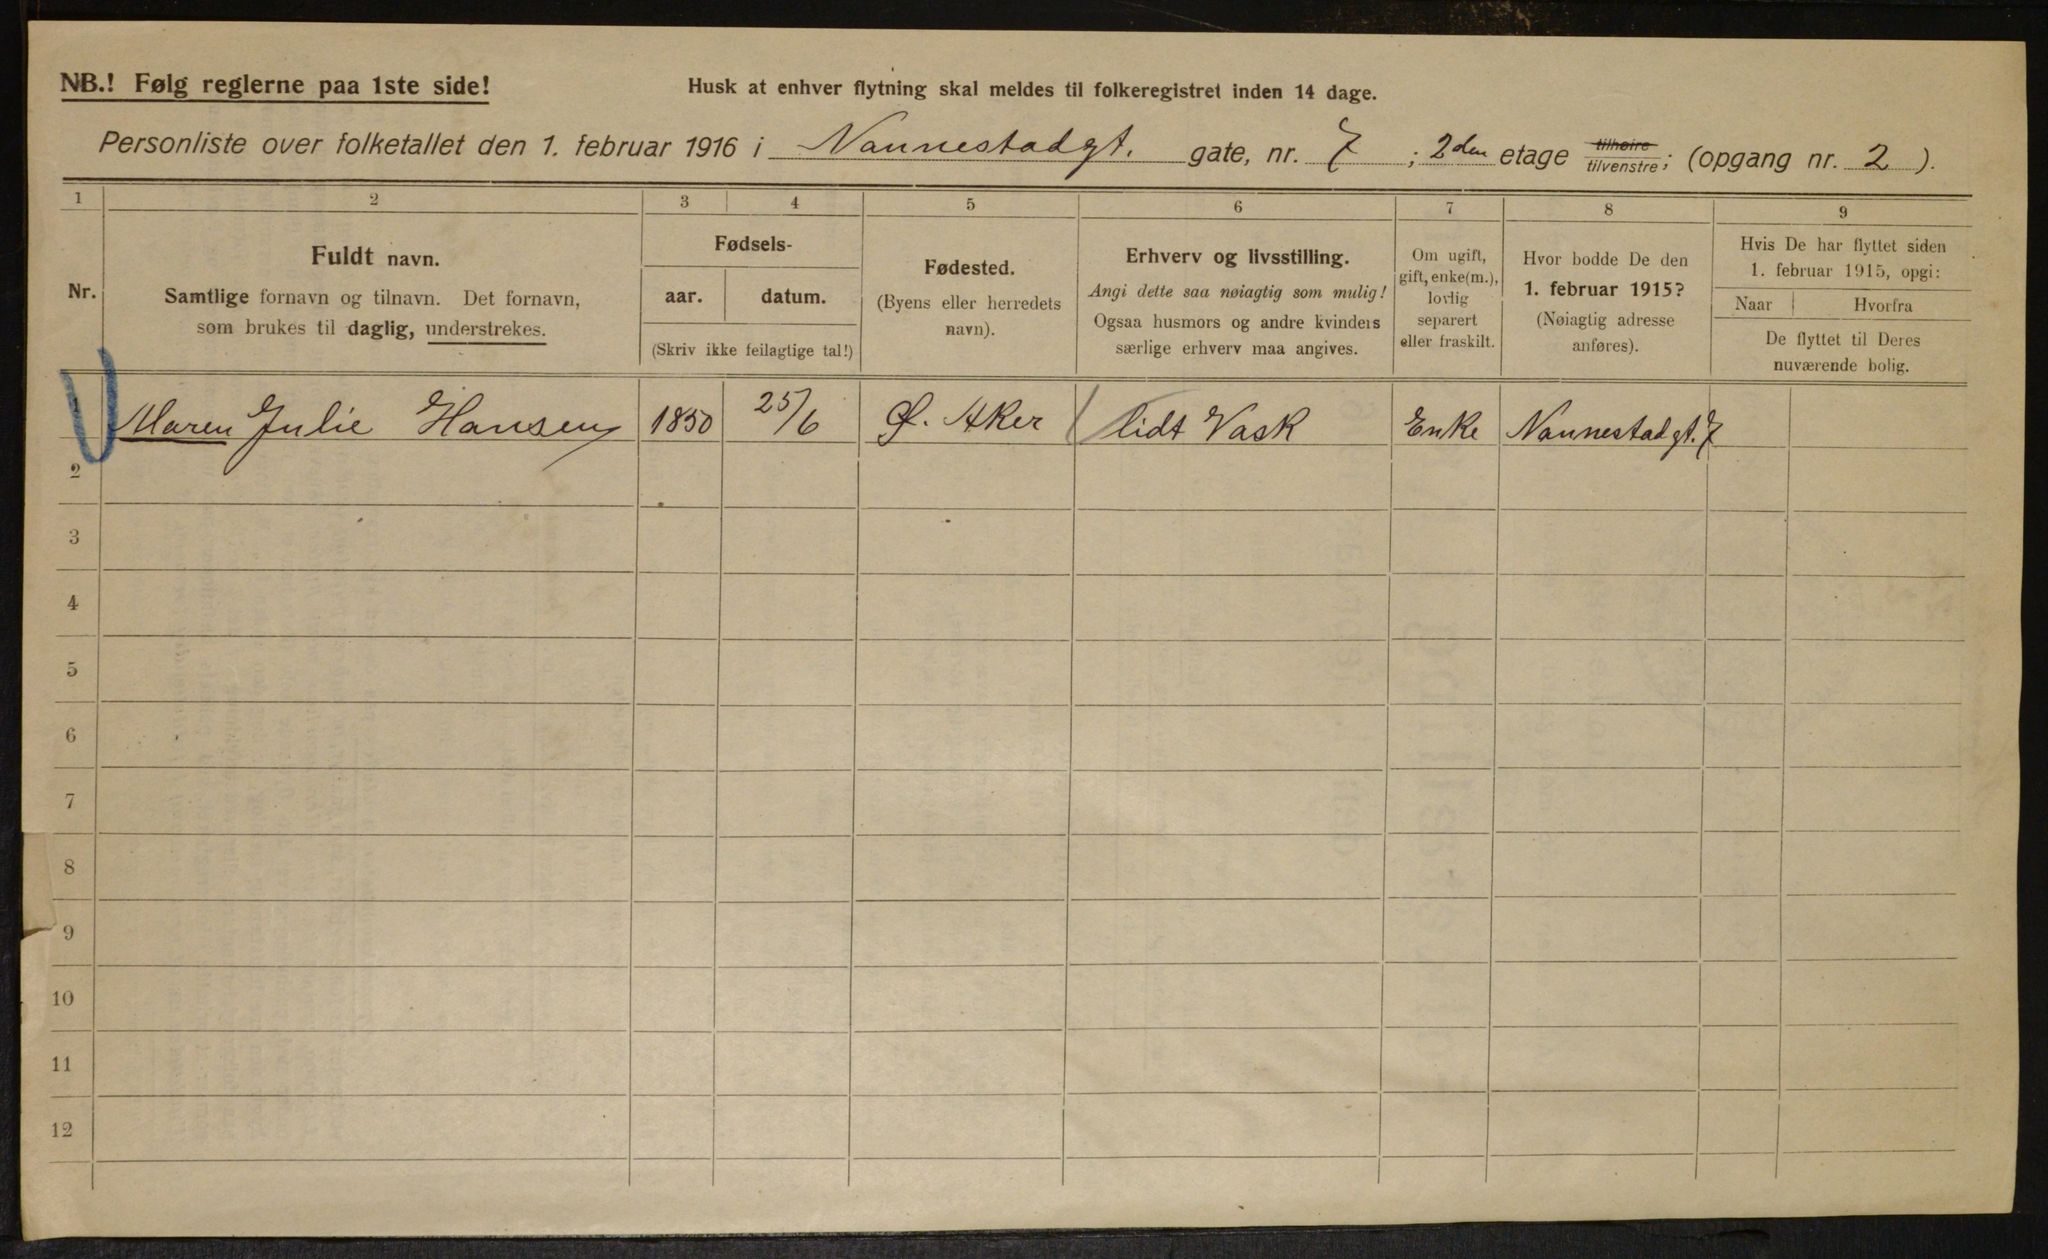 NB.! Følg reglerne paa 1ste side!
Husk at enhver flytning skal meldes til folkeregistret inden 14 dage.
Personliste over folketallet den 1. februar 1916 i Nannestadgt. gate, nr. 7 ; 2den etage tilhøire tilvenstre; (opgang nr. 2 ).
1 2 3 4 5 6 7 8 9
Nr.
Fuldt navn.
Samtlige fornavn og tilnavn. Det fornavn,
som brukes til daglig, understrekes.
Fødsels-
aar. datum.
(Skriv ikke feilagtige tal!)
Fødested.
(Byens eller herredets
navn).
Erhverv og livsstilling.
Angi dette saa nøiagtig som mulig!
Ogsaa husmors og andre kvinders
særlige erhverv maa angives.
Om ugift,
gift, enke(m.),
lovlig
separert
eller fraskilt.
Hvor bodde De den
1. februar 1915?
(Nøiagtig adresse
anføres).
Hvis De har flyttet siden
1. februar 1915, opgi:
Naar Hvorfra
De flyttet til Deres
nuværende bolig.
1 Maren Julie Hansen 1850 25/6 Ø. Aker lidt Vask Enke Nannestadgt. 7
2
3
4
5
6
7
8
9
10
11
12